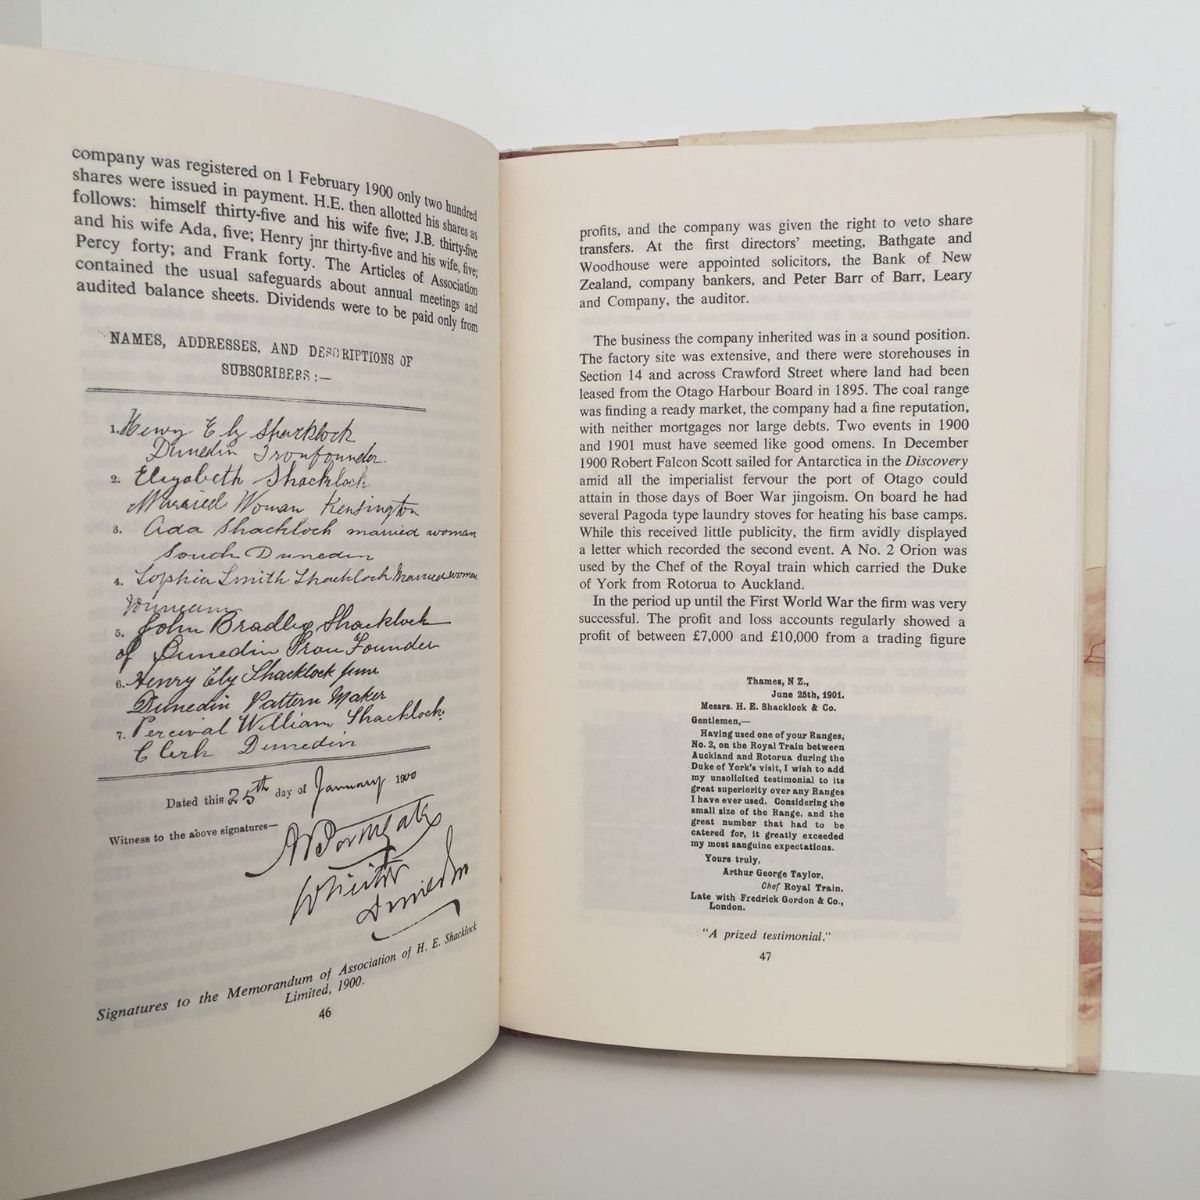 company was registered on 1 February 1900 only two hundred
shares were issued in payment. H.E. then allotted his shares as
follows: himself thirty-five and his wife five; J.B. thirty-five
and his wife Ada, five; Henry jnr thirty-five and his wife, five;
Percy forty; and Frank forty. The Articles of Association
contained the usual safeguards about annual meetings and
audited balance sheets. Dividends were to be paid only from
NAMES, ADDRESSES, AND DESCRIPTIONS OF
SUBSCRIBERS:—
1. Henry Ely Shacklock
Dunedin Ironfounder.
2. Elizabeth Shacklock
Married Woman Kensington
3. Ada Shacklock married woman
South Dunedin
4. Sophia Smith Shacklock Married woman
5. John Bradley Shacklock
of Dunedin Iron Founder
6. Henry Ely Shacklock Junr
Dunedin Pattern Maker
7. Percival William Shacklock
Clerk Dunedin
Dated this 25th day of January 1900
Witness to the above signatures—
Solicitor
Dunedin
Signatures to the Memorandum of Association of H. E. Shacklock
Limited, 1900.
46
profits, and the company was given the right to veto share
transfers. At the first directors' meeting, Bathgate and
Woodhouse were appointed solicitors, the Bank of New
Zealand, company bankers, and Peter Barr of Barr, Leary
and Company, the auditor.
The business the company inherited was in a sound position.
The factory site was extensive, and there were storehouses in
Section 14 and across Crawford Street where land had been
leased from the Otago Harbour Board in 1895. The coal range
was finding a ready market, the company had a fine reputation,
with neither mortgages nor large debts. Two events in 1900
and 1901 must have seemed like good omens. In December
1900 Robert Falcon Scott sailed for Antarctica in the Discovery
amid all the imperialist fervour the port of Otago could
attain in those days of Boer War jingoism. On board he had
several Pagoda type laundry stoves for heating his base camps.
While this received little publicity, the firm avidly displayed
a letter which recorded the second event. A No. 2 Orion was
used by the Chef of the Royal train which carried the Duke
of York from Rotorua to Auckland.
In the period up until the First World War the firm was very
successful. The profit and loss accounts regularly showed a
profit of between £7,000 and £10,000 from a trading figure
Thames, N Z.,
June 25th, 1901.
Messrs. H. E. Shacklock & Co.
Gentlemen,—
Having used one of your Ranges,
No. 2, on the Royal Train between
Auckland and Rotorua during the
Duke of York's visit, I wish to add
my unsolicited testimonial to its
great superiority over any Ranges
I have ever used. Considering the
small size of the Range, and the
great number that had to be
catered for, it greatly exceeded
my most sanguine expectations.
Yours truly,
Arthur George Taylor,
Chef Royal Train.
Late with Fredrick Gordon & Co.,
London.
"A prized testimonial."
47